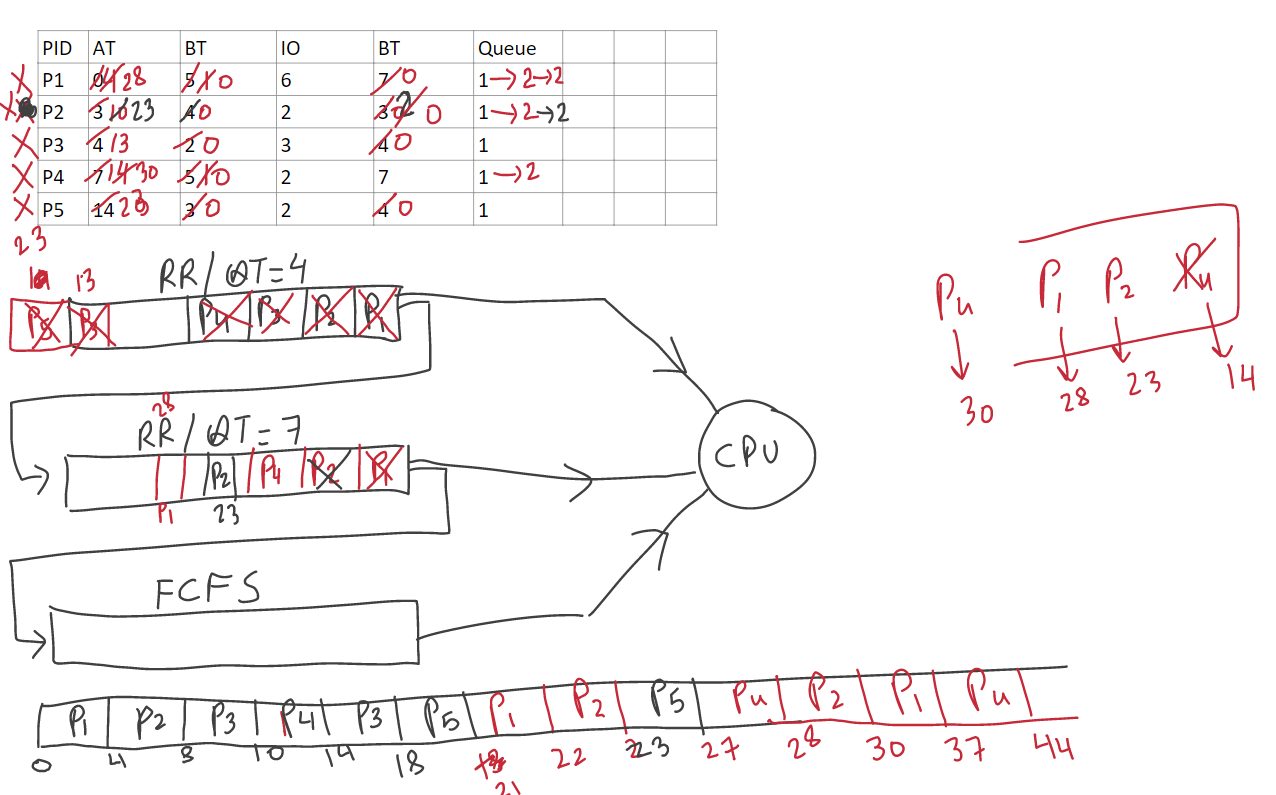 PID AT BT IO BT Queue
P1 0 4 28 5 1 0 6 7 0 1→2→2
P2 3 10 23 4 0 2 3 2 0 1→2→2
P3 4 13 2 0 3 4 0 1
P4 7 14 30 5 1 0 2 7 1→2
P5 14 23 3 0 2 4 0 1
23
13
RR/QT=4
P5 P3 P4 P3 P2 P1
P4 P1 P2 P4
30 28 23 14
28
RR/QT=7
P2 P4 P2 P1
P1 23
CPU
FCFS
P1 P2 P3 P4 P3 P5 P1 P2 P5 P4 P2 P1 P4
0 4 8 10 14 18 21 22 23 27 28 30 37 44